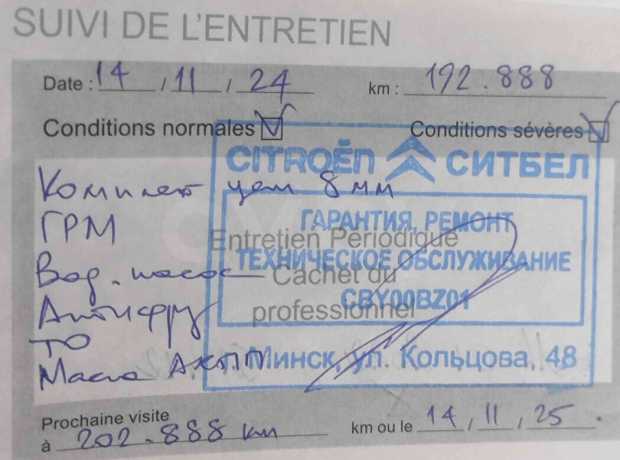 SUIVI DE L'ENTRETIEN
Date : 14 / 11 / 24 km : 192.888
Conditions normales Conditions sévères
CITROËN СИТБЕЛ
Комплект цепи 8 мм
ГАРАНТИЯ, РЕМОНТ
ГРМ
Entretien Périodique
ТЕХНИЧЕСКОЕ ОБСЛУЖИВАНИЕ
Вод. насос
Cachet du
CBY00BZ01
Антифриз
professionnel
ТО
Минск, ул. Кольцова, 48
Масло АКПП
Prochaine visite
à 202.888 км km ou le 14 / 11 / 25.